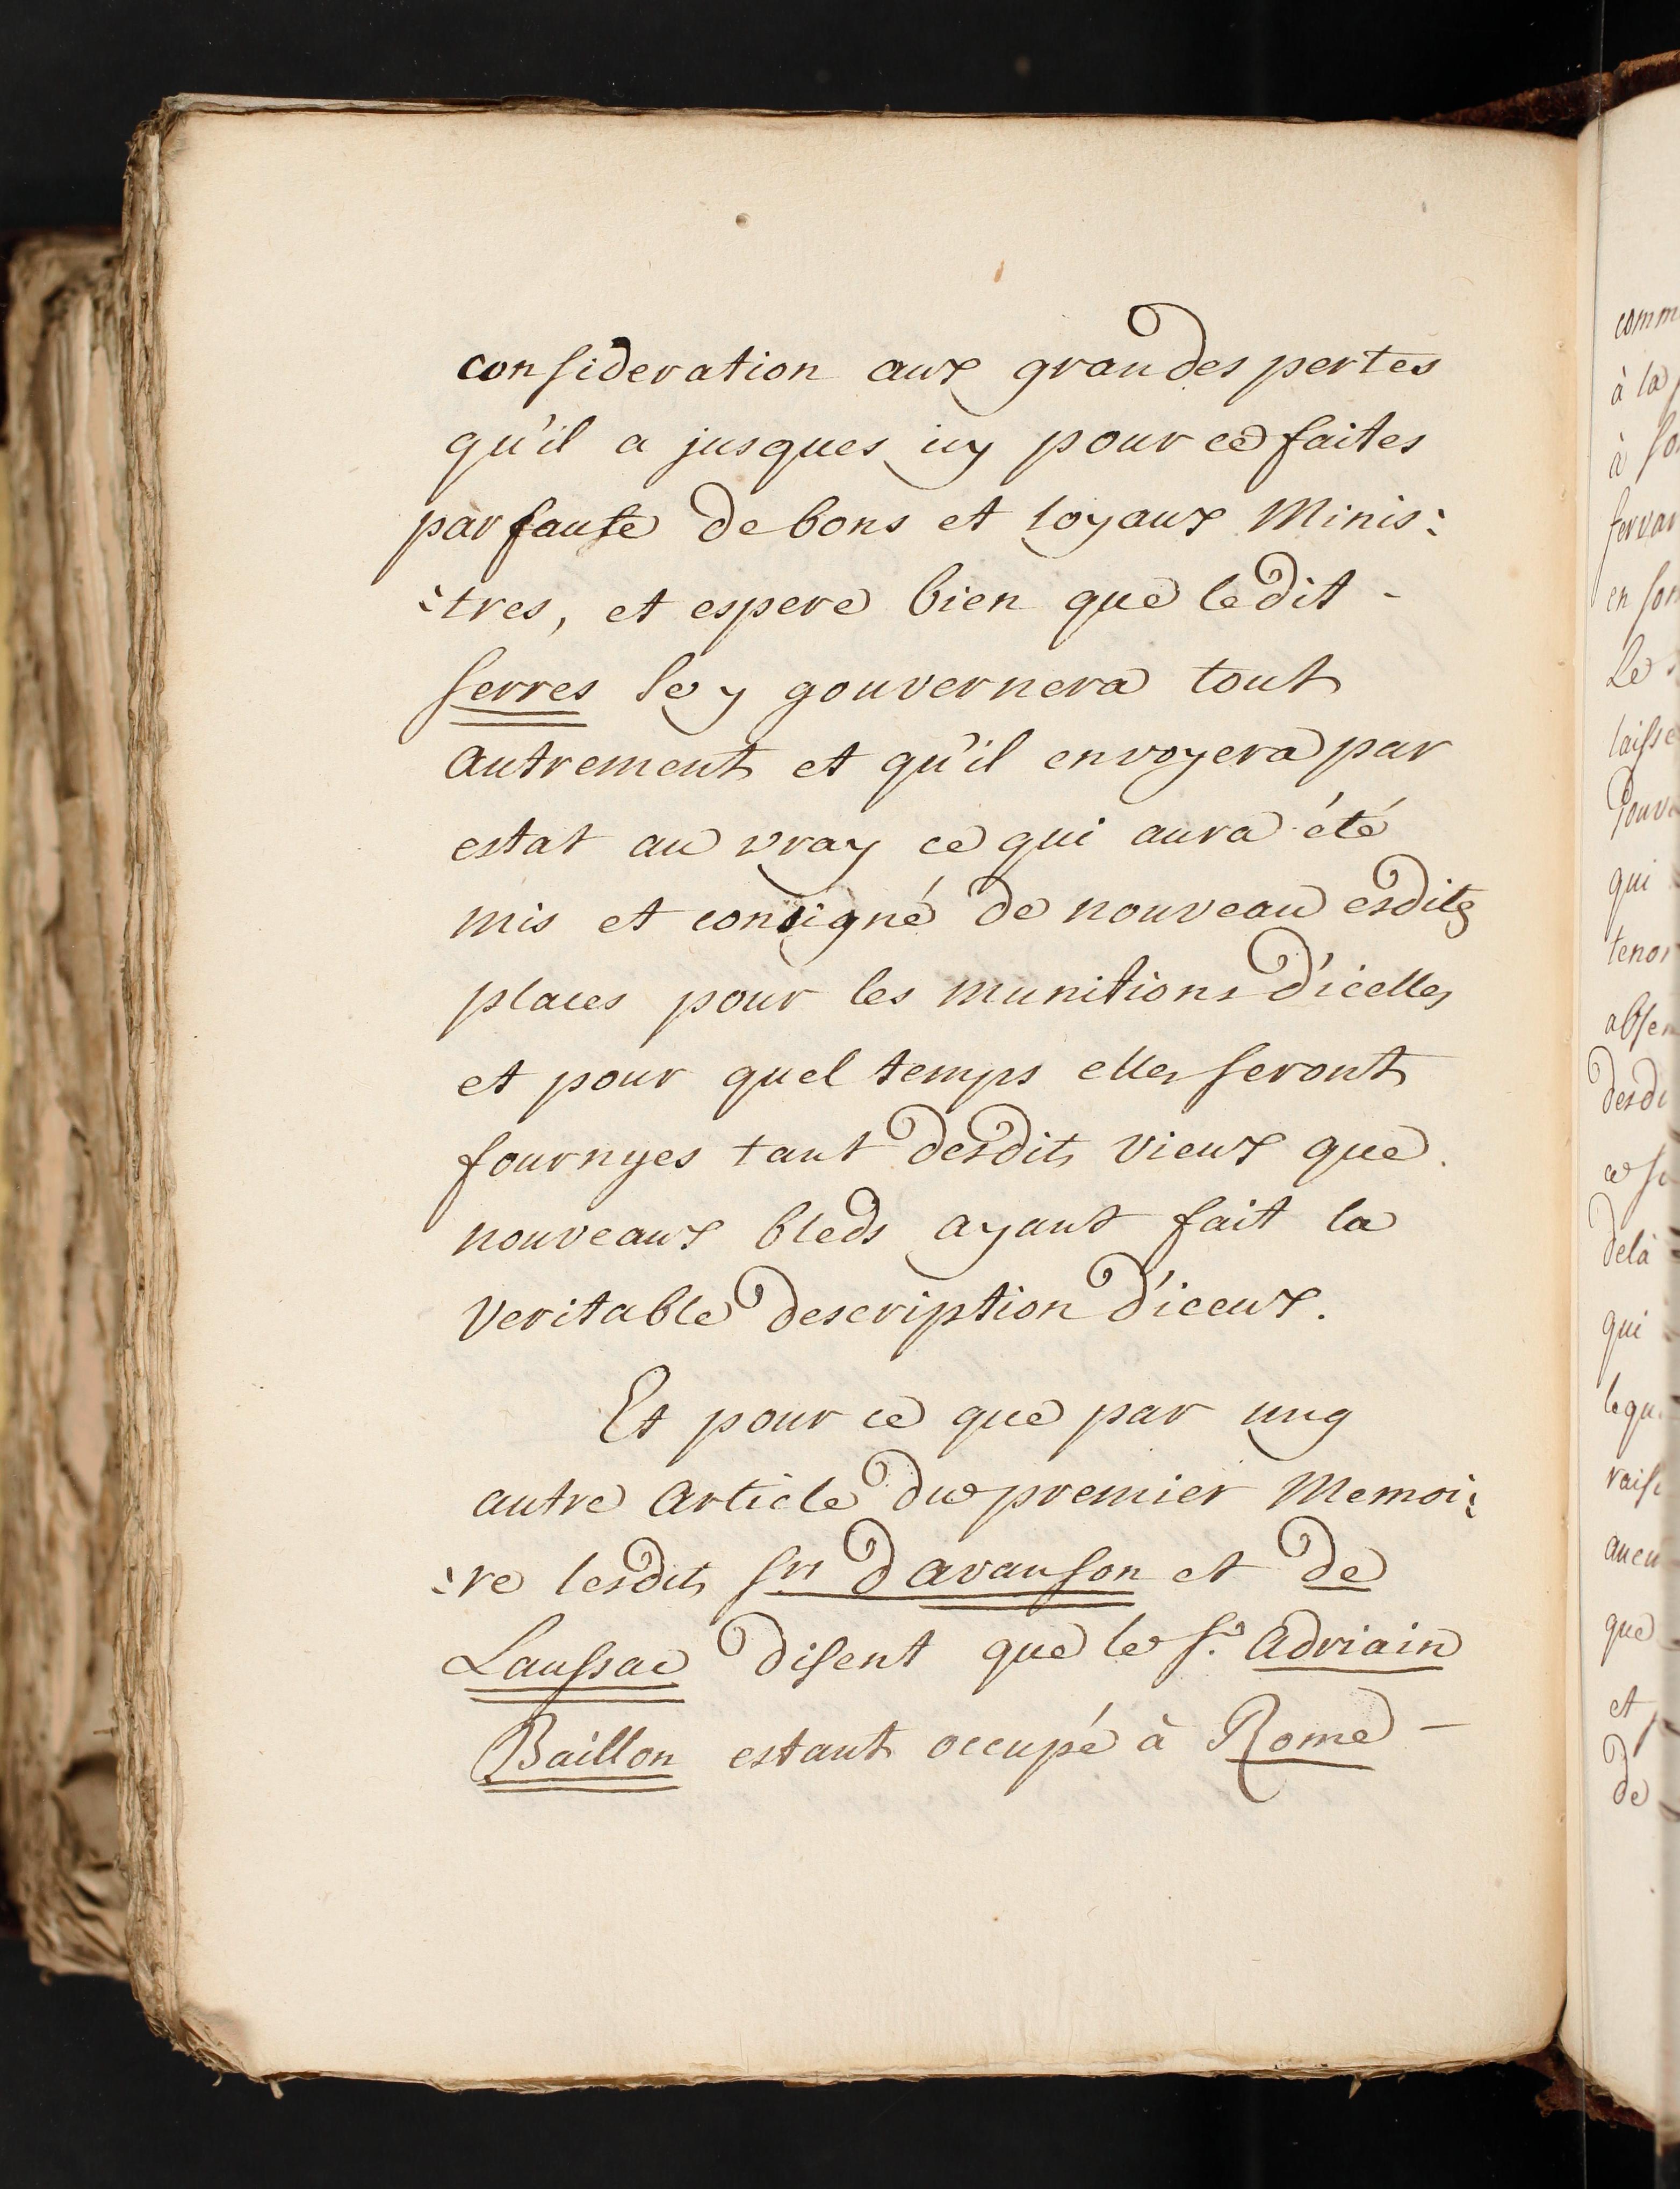 consideration aux grandes pertes
qu'il a jusques icy pour ce faites
par faute de bons et loyaux Minis:
:tres, et espere bien que ledit -
Serres se y gouvernera tout
autrement et qu'il envoyera par
estat au vray ce qui aura été
mis et consigné de nouveau esdits
places pour les munitions d'icelles
et pour quel temps elles seront
fournyes tant desdits vieux que
nouveaux bleds ayant fait la
veritable description d'iceux.
Et pour ce que par ung
autre article du premier Memoi:
:re lesdits Srs d'avanson et de
Laussac disent que le S.r Adriain
Baillon estant occupé à Rome -
comm
à la
à so
servan
en son
le
laisse
Pouv
qui
tenor
absen
desdi
ce su
delà
qui
lequ
raiso
aucu
que
et p
de